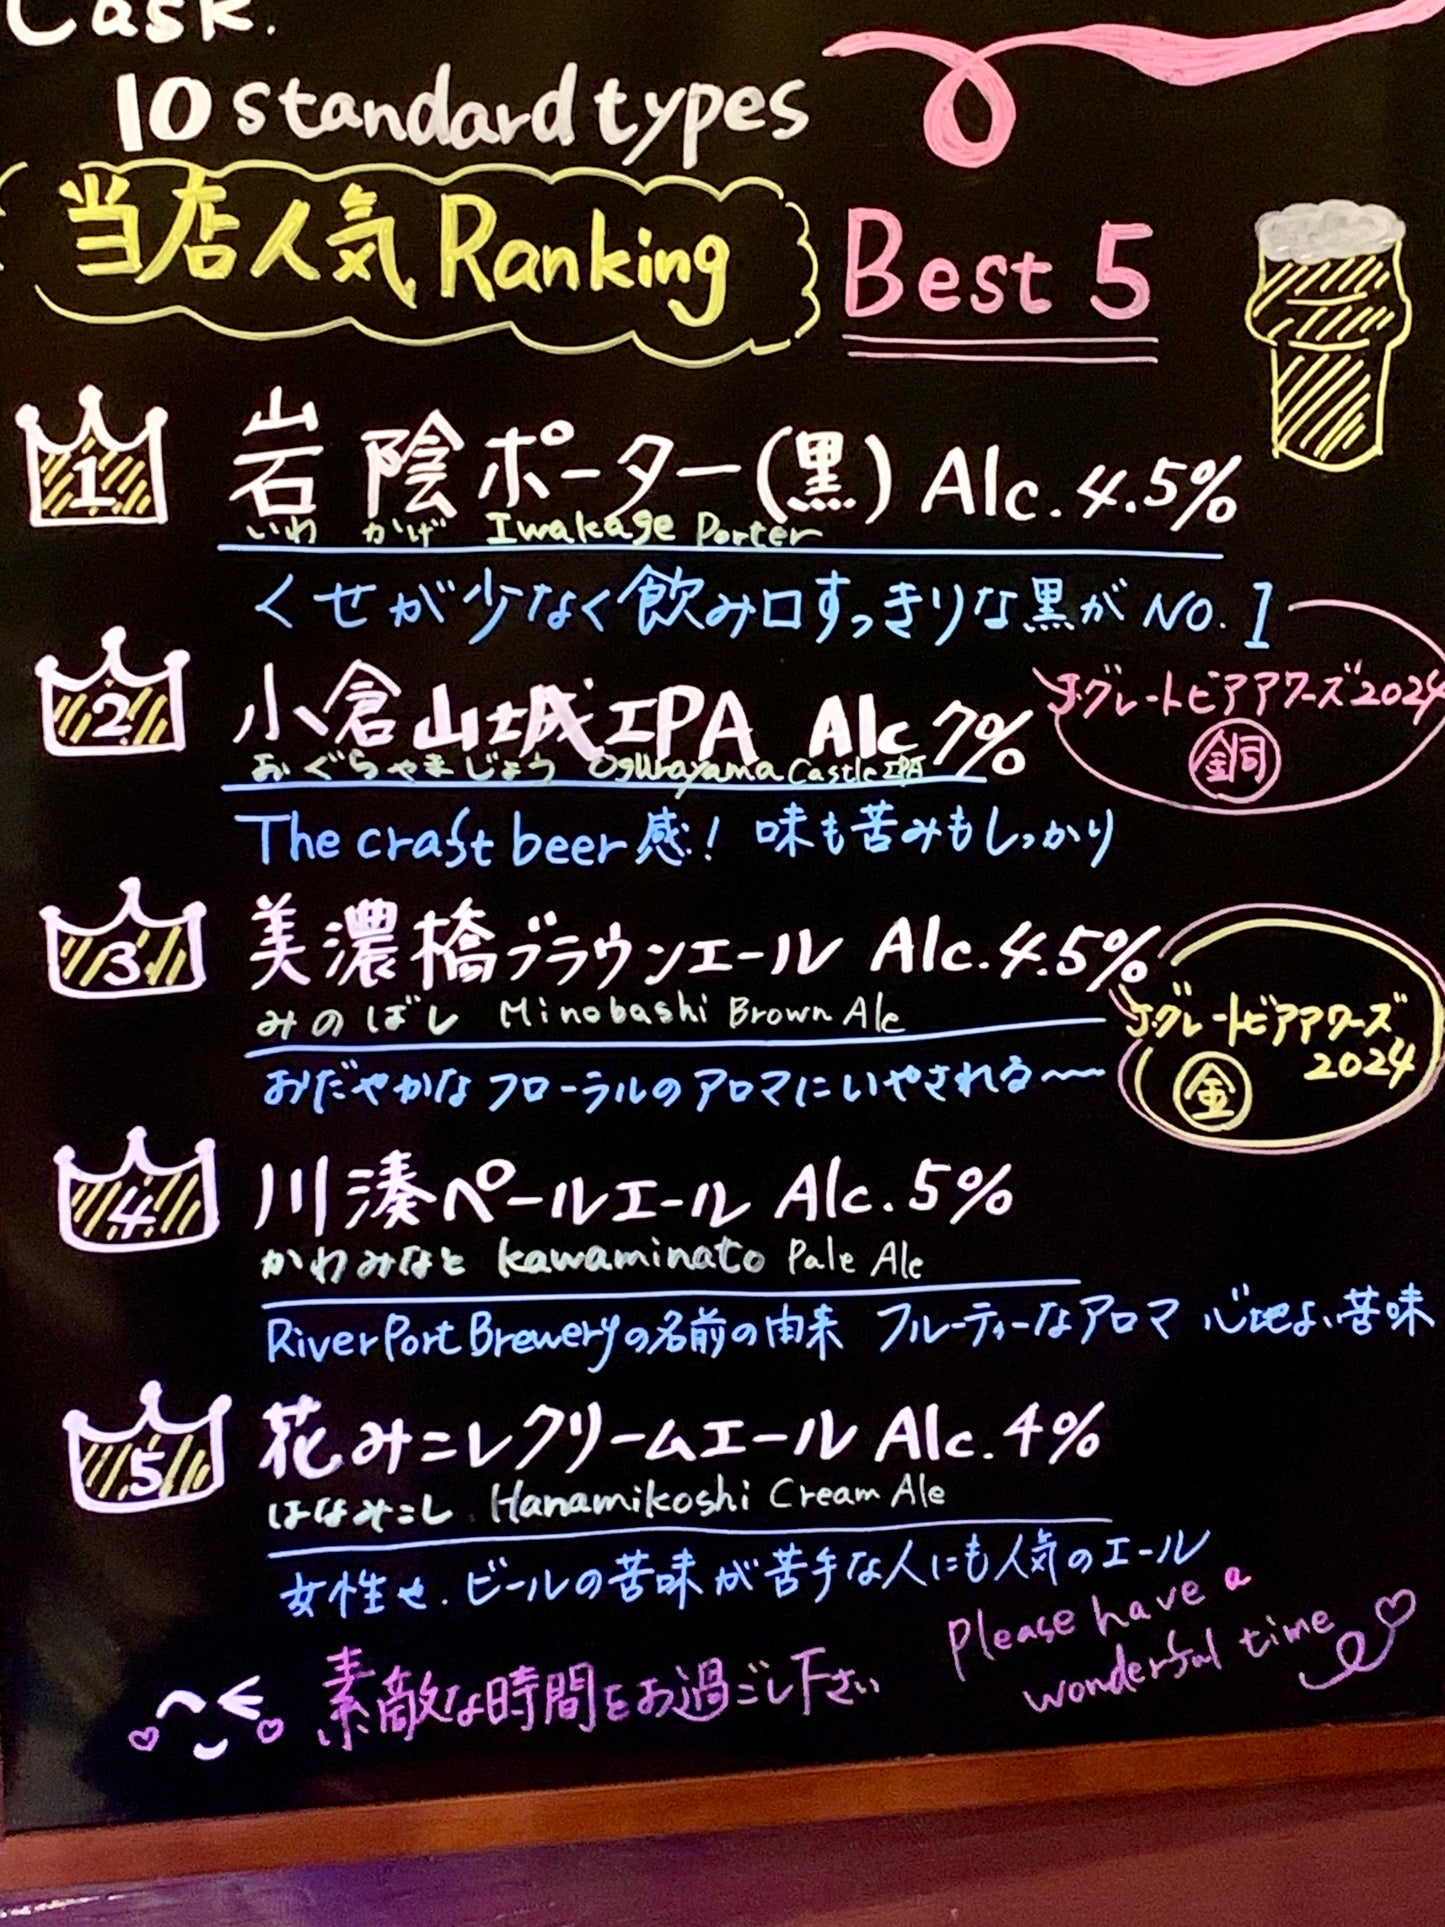 Cask.
10 standard types
当店人気 Ranking Best 5
1 岩陰ポーター(黒) Alc. 4.5%
いわ かげ Iwakage Porter
くせが少なく飲み口すっきりな黒が NO. 1
2 小倉山城IPA Alc 7%
おぐらやまじょう Ogurayama Castle IPA
J.グレートビアアワーズ2024
銅
The craft beer 感! 味も苦みもしっかり
3 美濃橋ブラウンエール Alc. 4.5%
みのばし Minobashi Brown Ale
J.グレートビアアワーズ
2024
金
おだやかなフローラルのアロマにいやされる〜
4 川湊ペールエール Alc. 5%
かわみなと kawaminato Pale Ale
RiverPort Breweryの名前の由来 フルーティーなアロマ 心地よい苦味
5 花みこしクリームエール Alc. 4%
はなみこし Hanamikoshi Cream Ale
女性や、ビールの苦味が苦手な人にも人気のエール
素敵な時間をお過ごし下さい
Please have a
wonderful time